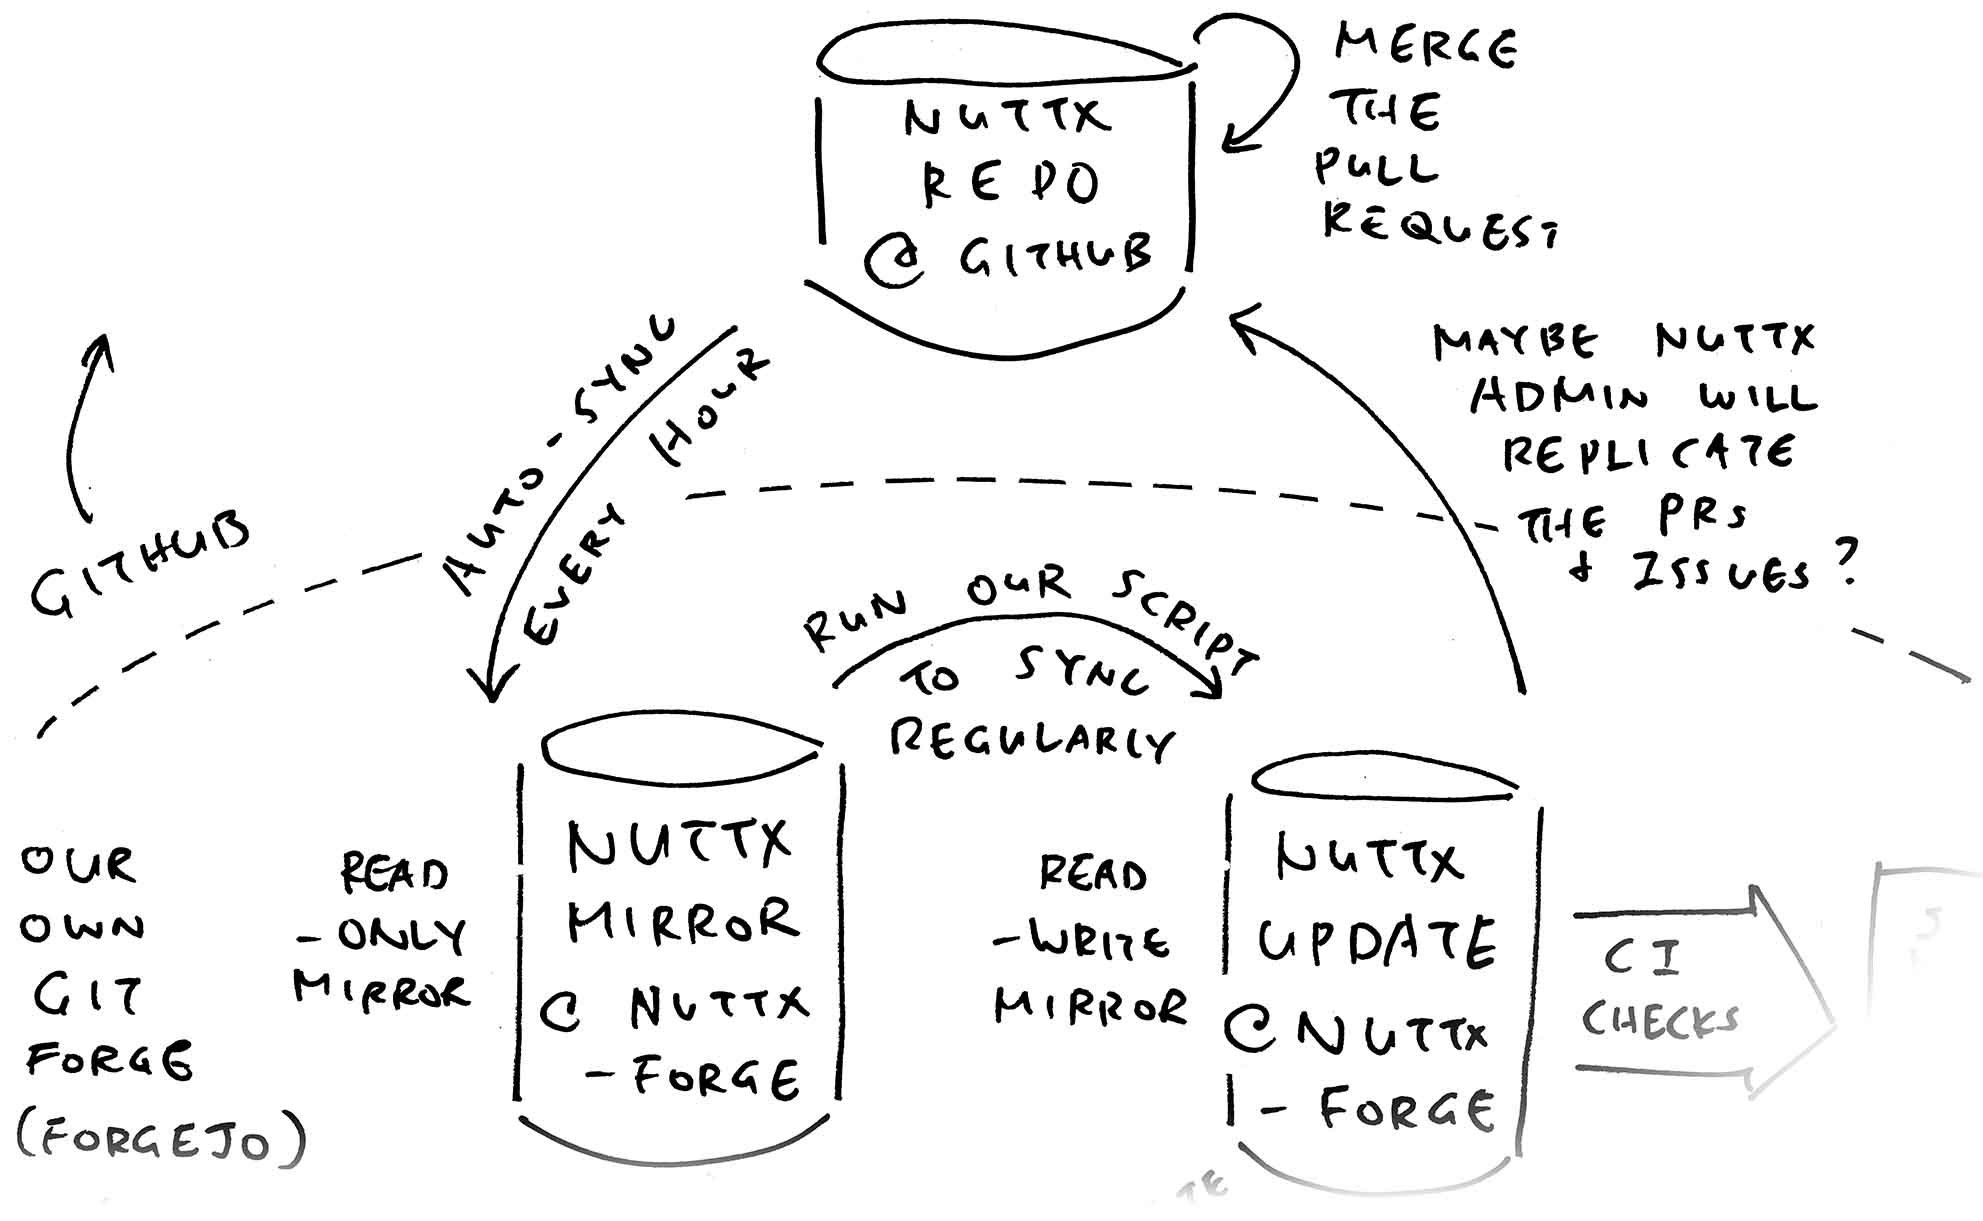 NUTTX
REPO
@ GITHUB
MERGE
THE
PULL
REQUEST
AUTO-SYNC
EVERY HOUR
MAYBE NUTTX
ADMIN WILL
REPLICATE
THE PRS
+ ISSUES?
GITHUB
RUN OUR SCRIPT
TO SYNC
REGULARLY
OUR
OWN
GIT
FORGE
(FORGEJO)
READ
-ONLY
MIRROR
NUTTX
MIRROR
@ NUTTX
-FORGE
READ
-WRITE
MIRROR
NUTTX
UPDATE
@ NUTTX
-FORGE
CI
CHECKS